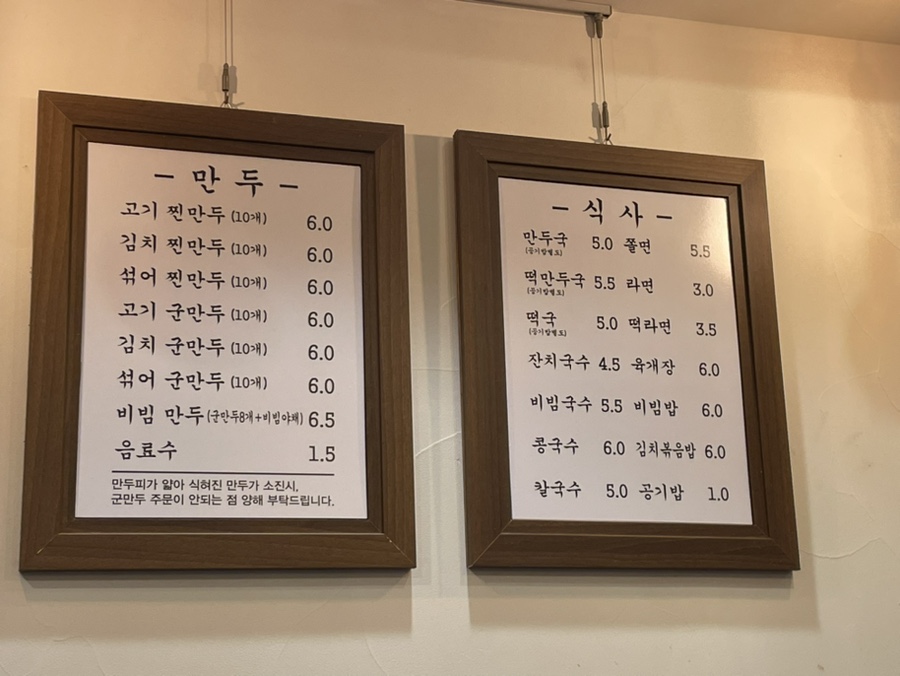 - 만두 -
고기 찐만두 (10개) 6.0
김치 찐만두 (10개) 6.0
섞어 찐만두 (10개) 6.0
고기 군만두 (10개) 6.0
김치 군만두 (10개) 6.0
섞어 군만두 (10개) 6.0
비빔 만두 (군만두8개+비빔야채) 6.5
음료수 1.5
만두피가 얇아 식혀진 만두가 소진시,
군만두 주문이 안되는 점 양해 부탁드립니다.
- 식사 -
만두국 5.0 쫄면 5.5
(공기밥별도)
떡만두국 5.5 라면 3.0
(공기밥별도)
떡국 5.0 떡라면 3.5
(공기밥별도)
잔치국수 4.5 육개장 6.0
비빔국수 5.5 비빔밥 6.0
콩국수 6.0 김치볶음밥 6.0
칼국수 5.0 공기밥 1.0